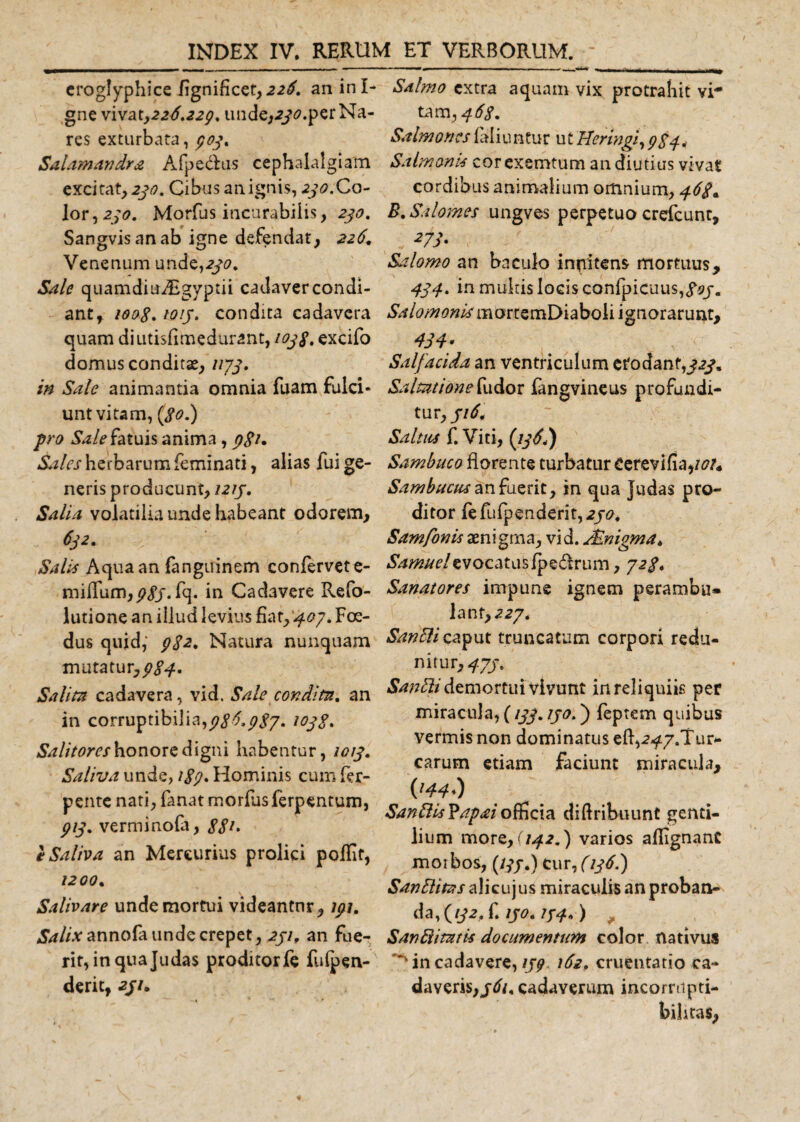 INDEX IV. RERUM ET VERBORUM.
eroglyphice ſignificet, 226. an in I-
gne vivat, 226.229. unde, 230. per Na-
res exturbata, 903.
Salamandræ Aſpectus cephalalgiam
excitat, 230. Cibus an ignis, 230. Co-
lor, 230. Morſus incurabilis, 230.
Sangvis an ab igne defendat, 226.
Venenum unde, 230.
Sale quamdiu Ægyptii cadaver condi-
ant, 1008. 1015. condita cadavera
quam diutisſime durant, 1038. exciſo
domus conditæ, 1173.
in Sale animantia omnia ſuam fulci-
unt vitam, (80.)
pro Sale fatuis anima, 981.
Sales herbarum ſeminati, alias ſui ge-
neris producunt, 1215.
Salia volatilia unde habeant odorem,
632.
Salis Aqua an ſanguinem conſervet e-
miſſum, 985. ſq. in Cadavere Reſo-
lutione an illud levius fiat, 407. Fœ-
dus quid, 982. Natura nunquam
mutatur, 984.
Salita cadavera, vid. Sale condita. an
in corruptibilia, 986. 987. 1038.
Salitores honore digni habentur, 1013.
Saliva unde, 189. Hominis cum ſer-
pente nati, ſanat morſus ſerpentum,
913. verminoſa, 881.
è Saliva an Mercurius prolici poſſit,
1200.
Salivare unde mortui videantnr, 191.
Salix annoſa unde crepet, 251. an fue-
rit, in qua Judas proditor ſe ſuſpen-
derit, 251.
Salmo extra aquam vix protrahit vi-
tam, 468.
Salmones ſaliuntur ut Heringi, 984.
Salmonis cor exemtum an diutius vivat
cordibus animalium omnium, 468.
B. Salomes ungves perpetuo creſcunt,
273.
Salomo an baculo innitens mortuus,
434. in multis locis conſpicuus, 805.
Salomonis mortem Diaboli ignorarunt,
434.
Salſacida an ventriculum erodant, 323.
Saltatione ſudor ſangvineus profundi-
tur, 516.
Saltus ſ. Viti, (136.)
Sambuco florente turbatur Cereviſia, 101.
Sambucus an fuerit, in qua Judas pro-
ditor ſe ſuſpenderit, 250.
Samſonis ænigma, vid. Ænigma.
Samuel evocatus ſpectrum, 728.
Sanatores impune ignem perambu-
lant, 227.
Sancti caput truncatum corpori redu-
nitur, 475.
Sancti demortui vivunt in reliquiis per
miracula, (133. 150.) ſeptem quibus
vermis non dominatus eſt, 247. Tur-
carum etiam faciunt miracula,
(144.)
Sanctis Papæi officia diſtribuunt genti-
lium more, (142.) varios aſſignant
morbos, (135.) cur, (136.)
Sanctitas alicujus miraculis an proban-
da, (132. ſ. 150. 154.)
Sanctitatis documentum color nativus
in cadavere, 159. 162. cruentatio ca-
daveris, 561. cadaverum incorrupti-
bilitas,